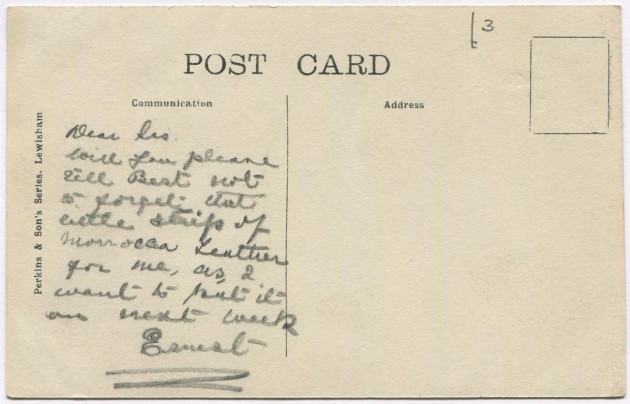 3
POST CARD
Communication
Address
Perkins & Son's Series. Lewisham
Dear Sis.
Will you please
tell Bert not
to forget that
little strip of
Morrocca Leather
for me, as I
want to put it
on next week
Ernest